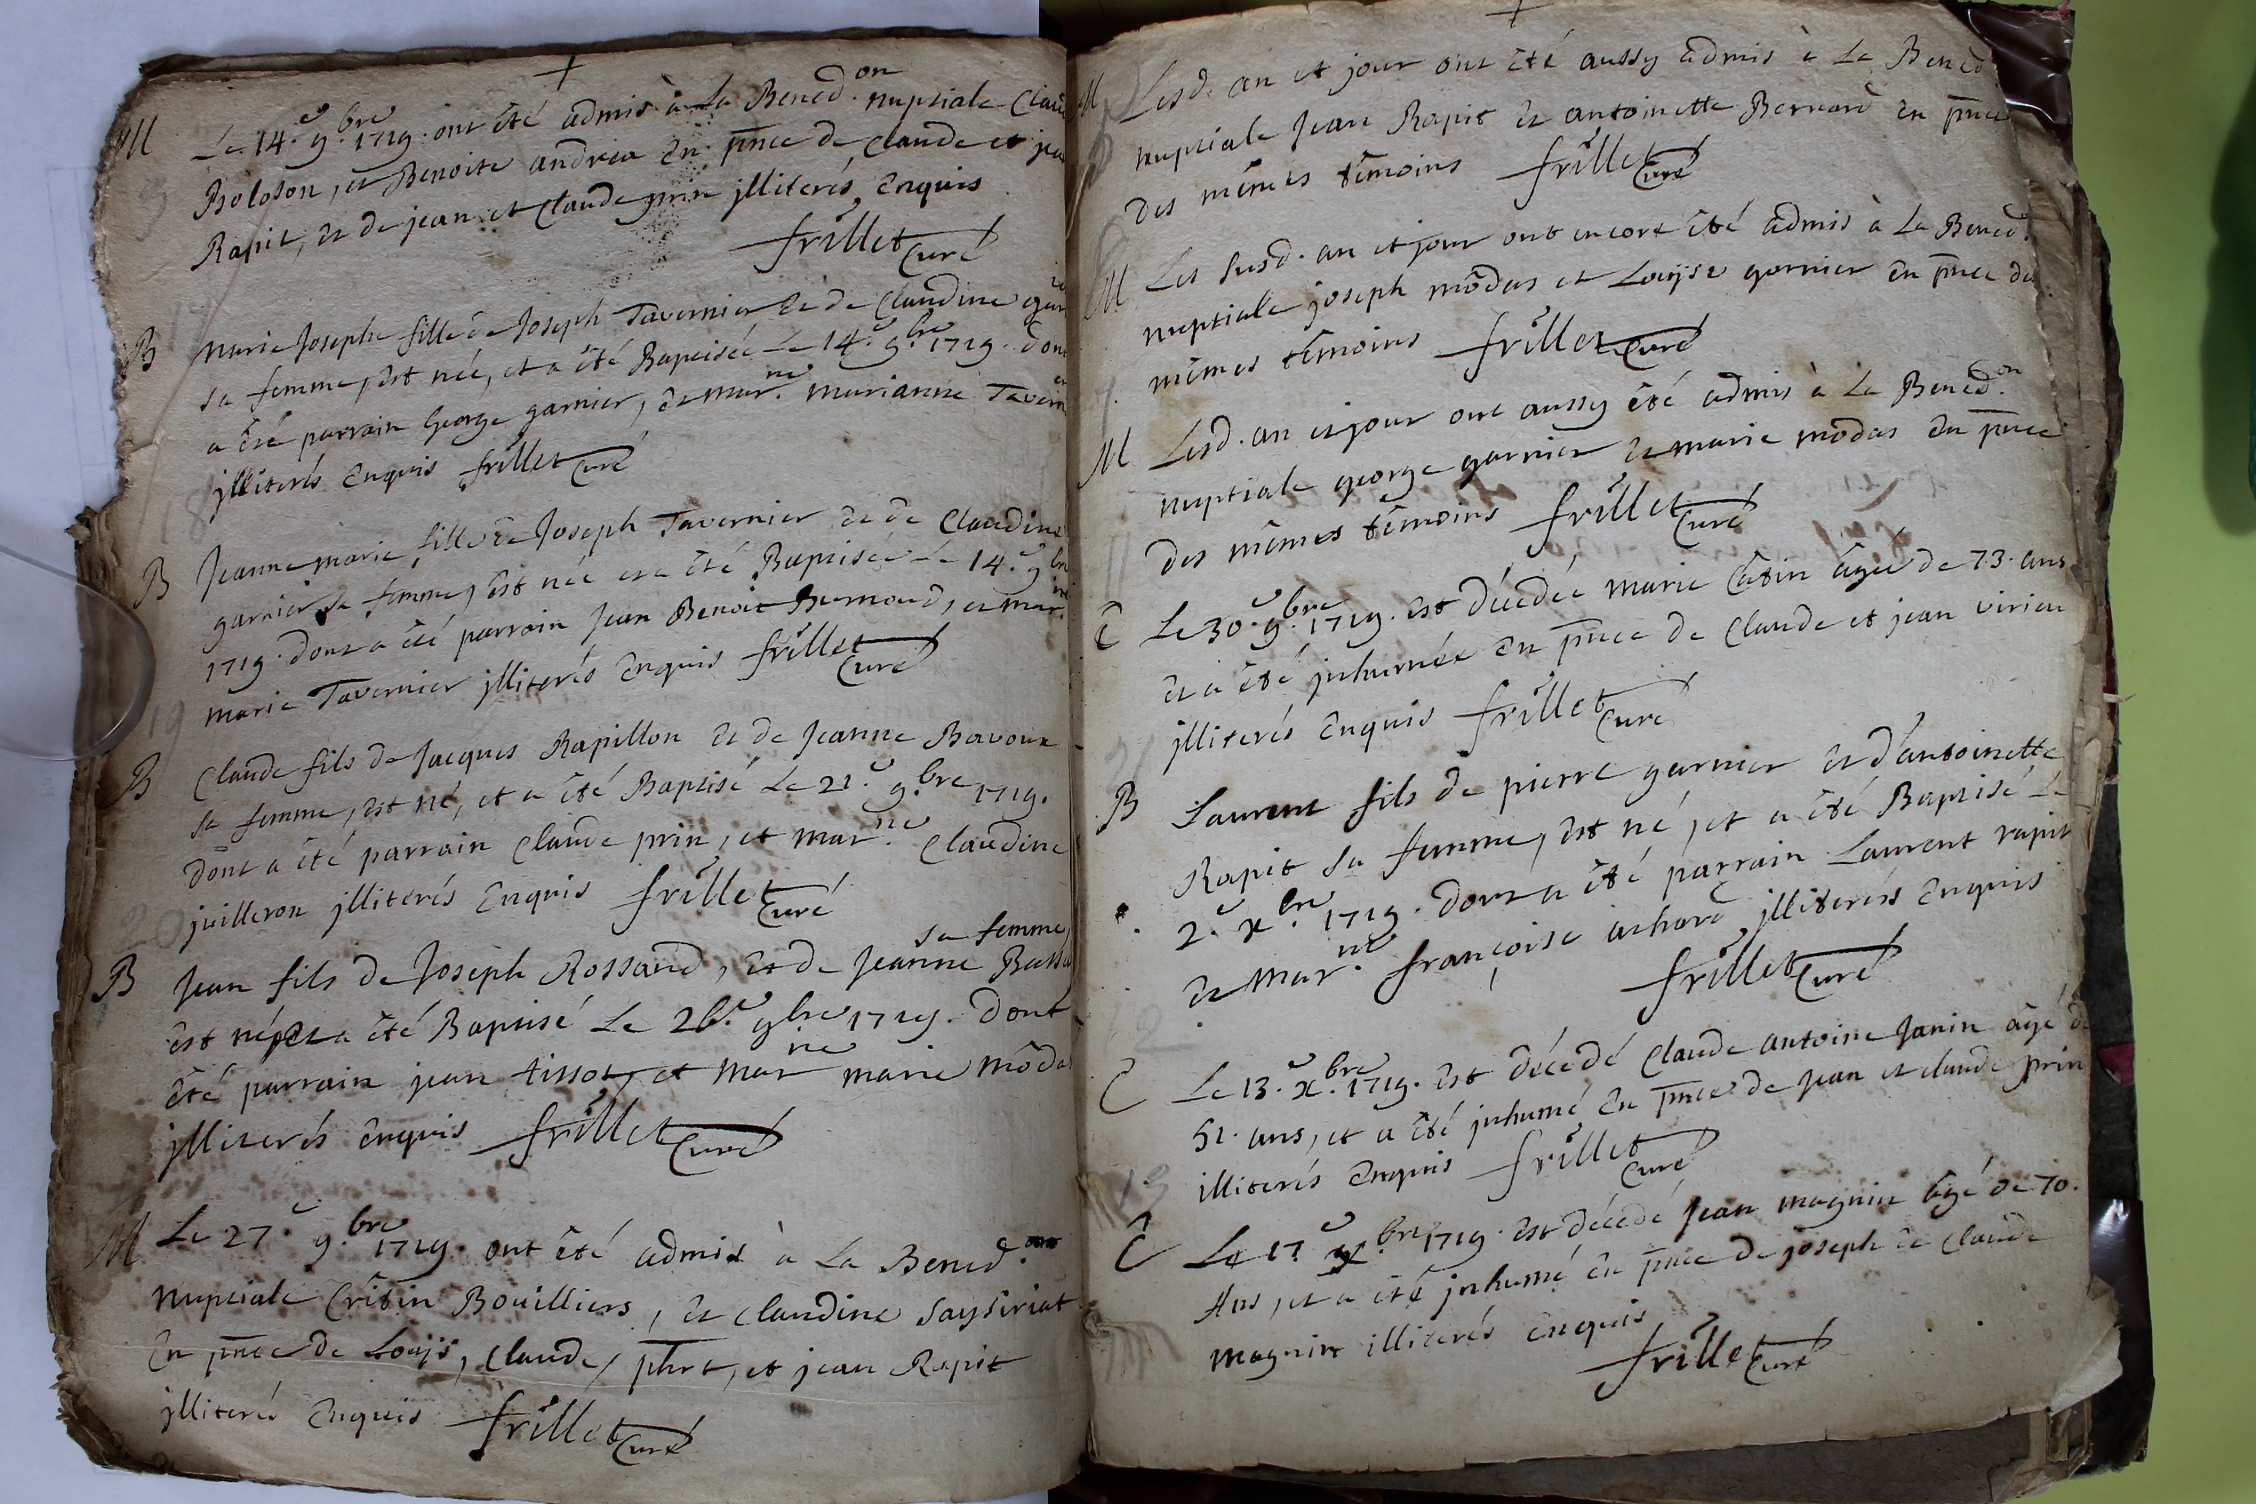 M Le 14.e 9.bre 1719. ont été admis à La Bened.on nuptiale Clau
Boloson, et Benoite andrea En pnce de Claude et jea
Rapit, et de jean et Claude prin jlliterés Enquis
frillet Curé
B Marie Josephe fille de Joseph Tavernier Et de Claudine gar
sa femme, est née, et a été Baptisée Le 14.e 9.bre 1719. dont
a été parrain George garnier, et mar.ne marianne Tavern
jlliterés Enquis frillet Curé
B Jeanne marie fille de Joseph Tavernier et de Claudine
garnier sa femme, est née et a été Baptisée Le 14.e 9.bre
1719. dont a été parrain Jean Benoit, et mar.ne
marie Tavernier jlliterés Enquis frillet Curé
B Claude fils de Jacques Rapillon et de Jeanne Bavoux
sa femme, est né, et a été Baptisé Le 21.e 9.bre 1719.
dont a été parrain Claude prin, et mar.ne Claudine
juilleron jlliterés Enquis frillet Curé
sa femme,
B Jean fils de Joseph Rossand, et de Jeanne
est né, et a été Baptisé Le 26.e 9.bre 1719. Dont
été parrain jean tissot, et mar.ne marie môda
jlliterés Enquis frillet Curé
M Le 27.e 9.bre 1719. ont été admis à La Bened.on
nuptiale Critin Bouilliers, et claudine Saysiriat
En pnce de Louis, Claude, phrt, et jean Rapit
jlliterés Enquis frillet Curé
M Lesd. an et jour ont été aussy admis à La Bened
nuptiale Jean Rapit et antoinette Bernard En pnce
des mêmes témoins frillet Curé
M Les susd. an et jour ont encore été admis à La Bened.
nuptiale joseph môdas et Louise garnier En pnce de
mêmes témoins frillet Curé
M Lesd. an et jour ont aussy été admis à La Bened.on
nuptiale george garnier et marie môdas En pnce
des mêmes témoins frillet Curé
C Le 30.e 9.bre 1719. est décedée marie Câtin âgée de 73. ans
et a été jnhumée En pnce de Claude et jean virieu
jlliterés Enquis frillet Curé
B Laurent fils de pierre garnier et d'antoinette
Rapit sa femme, est né, et a été Baptisé Le
2.e x.bre 1719. dont a été parrain Laurent rapit
et mar.ne françoise achard jlliterés Enquis
frillet Curé
C Le 13.e x.bre 1719. est décedé Claude antoine Janin âgé de
51. ans, et a été jnhumé En pnce de jean et claude prin
illiterés Enquis frillet Curé
C Le 17.e x.bre 1719. est décedé Jean magnin âgé de 70.
Ans, et a été jnhumé En pnce de joseph et Claude
magnin illiterés Enquis
frillet Curé